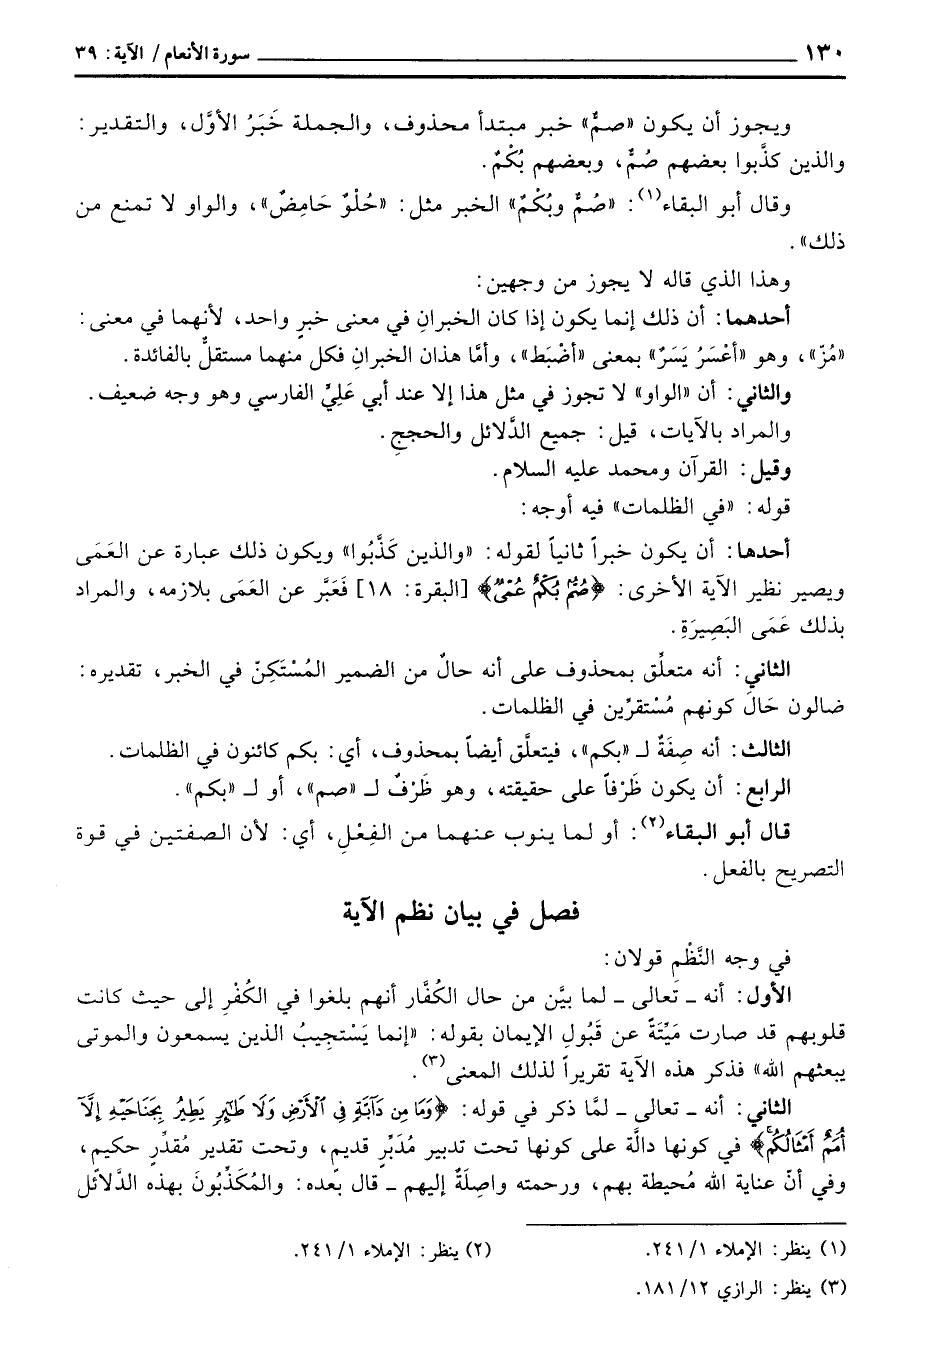 ١٣٠ سورة الأنعام / الآية: ٣٩
ويجوز أن يكون «صمٌّ» خبر مبتدأ محذوف، والجملة خَبَرُ الأوَّل، والتقدير:
والذين كذَّبوا بعضهم صُمٌّ، وبعضهم بُكْمٌ.
وقال أبو البقاء(١): «صُمٌّ وبُكْمٌ» الخبر مثل: «حُلْوٌ حَامِضٌ»، والواو لا تمنع من
ذلك».
وهذا الذي قاله لا يجوز من وجهين:
أحدهما: أن ذلك إنما يكون إذا كان الخبرانِ في معنى خبرٍ واحد، لأنهما في معنى:
«مُزّ»، وهو «أعْسَرُ يَسَرٌ» بمعنى «أضْبَط»، وأمَّا هذان الخبرانِ فكل منهما مستقلٌّ بالفائدة.
والثاني: أن «الواو» لا تجوز في مثل هذا إلا عند أبي عَلِيٍّ الفارسي وهو وجه ضعيف.
والمراد بالآيات، قيل: جميع الدَّلائل والحججِ.
وقيل: القرآن ومحمد عليه السلام.
قوله: «في الظلمات» فيه أوجه:
أحدها: أن يكون خبراً ثانياً لقوله: «والذين كَذَّبُوا» ويكون ذلك عبارة عن العَمَى
ويصير نظير الآية الأخرى: ﴿صُمٌّ بُكْمٌ عُمْيٌ﴾ [البقرة: ١٨] فَعَبَّر عن العَمَى بلازمه، والمراد
بذلك عَمَى البَصِيرَةِ.
الثاني: أنه متعلِّق بمحذوف على أنه حالٌ من الضمير المُسْتَكِنّ في الخبر، تقديره:
ضالون حَالَ كونهم مُسْتقرِّين في الظلمات.
الثالث: أنه صِفَةٌ لـ «بكم»، فيتعلَّق أيضاً بمحذوف، أي: بكم كائنون في الظلمات.
الرابع: أن يكون ظَرْفاً على حقيقته، وهو ظَرْفٌ لـ «صم»، أو لـ «بكم».
قال أبو البقاء(٢): أو لما ينوب عنهما من الفِعْلِ، أي: لأن الصفتين في قوة
التصريح بالفعل.
فصل في بيان نظم الآية
في وجه النَّظْمِ قولان:
الأول: أنه ـ تَعالى ـ لما بيَّن من حال الكُفَّار أنهم بلغوا في الكُفْرِ إلى حيث كانت
قلوبهم قد صارت مَيِّتَةً عن قَبُولِ الإيمان بقوله: «إنما يَسْتجِيبُ الذين يسمعون والموتى
يبعثهم الله» فذكر هذه الآية تقريراً لذلك المعنى(٣).
الثاني: أنه ـ تعالى ـ لمَّا ذكر في قوله: ﴿وَمَا مِن دَآبَّةٍ فِى ٱلْأَرْضِ وَلَا طَٰٓئِرٍ يَطِيرُ بِجَنَاحَيْهِ إِلَّآ
أُمَمٌ أَمْثَالُكُم﴾ في كونها دالَّة على كونها تحت تدبير مُدَبِّرٍ قديم، وتحت تقدير مُقدِّرٍ حكيم،
وفي أنّ عناية الله مُحيطة بهم، ورحمته واصِلَةٌ إليهم ـ قال بَعده: والمُكَذِّبُونَ بهذه الدَّلائل
(١) ينظر: الإملاء ١/ ٢٤١. (٢) ينظر: الإملاء ١/ ٢٤١.
(٣) ينظر: الرازي ١٢/ ١٨١.